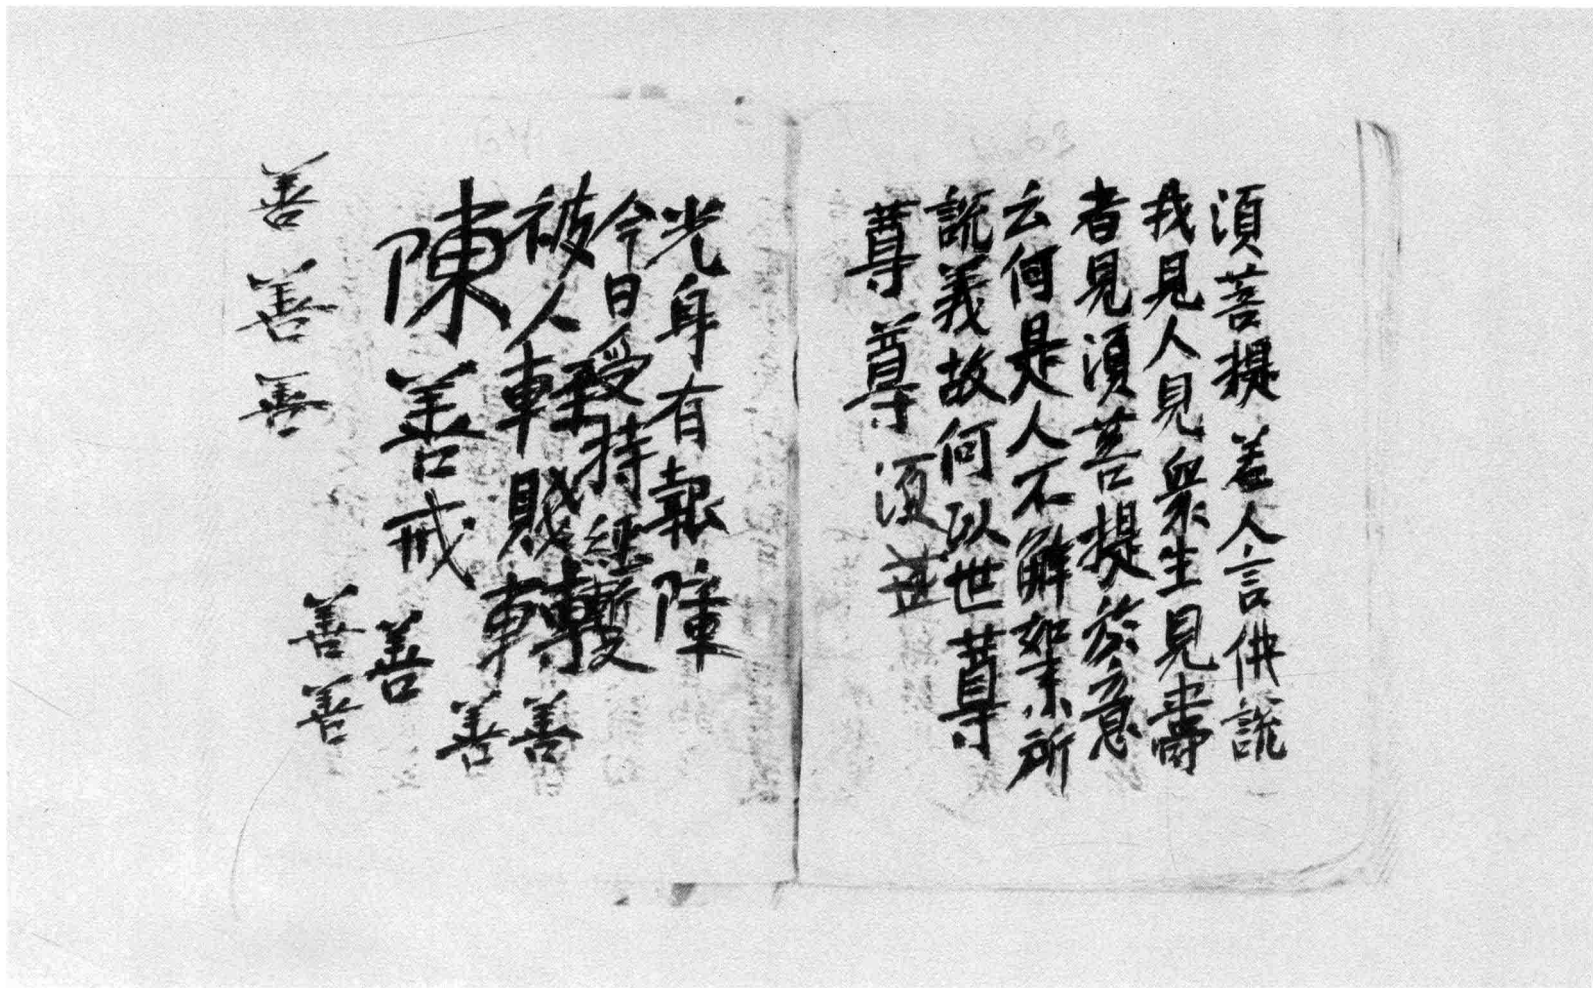 須菩提若人言佛説
我見人見衆生見壽
者見須菩提扵意
云何是人不解如來所
説義故何以世尊
尊尊須菩
光身有報障
今日受持經暫
被人輕賤轉轉
善善
陳善戒
善
善善
善善善